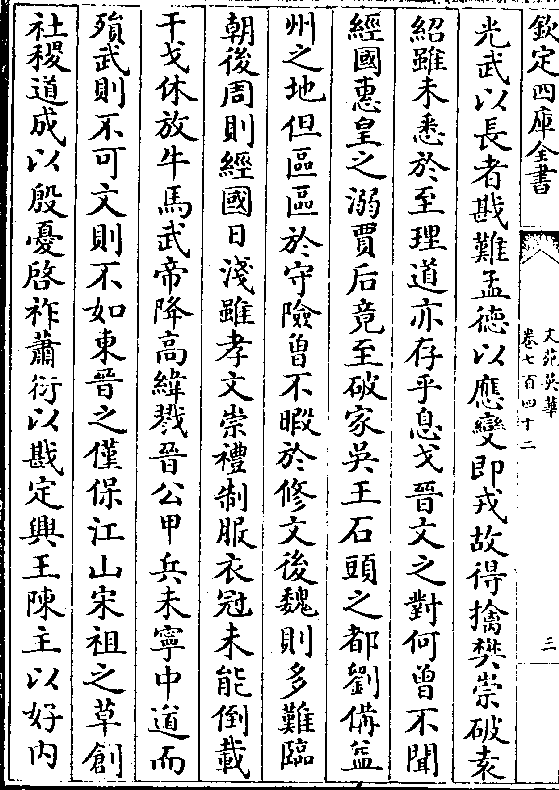 欽定四庫全書
文苑英華
卷七百四十二
三
光武以長者戡難孟德以應變即戎故得擒樊崇破袁
紹雖未悉於至理道亦存乎息戈晉文之對何曾不聞
經國惠皇之溺賈后竟至破家吳王石頭之都劉備益
州之地但區區於守險曾不暇於修文後魏則多難臨
朝後周則經國日淺雖孝文崇禮制服衣冠未能倒載
干戈休放牛馬武帝降高緯戮晉公甲兵未寧中道而
殞武則不可文則不如東晉之僅保江山宋祖之草創
社稷道成以殷憂啓祚蕭衍以戡定興王陳主以好内